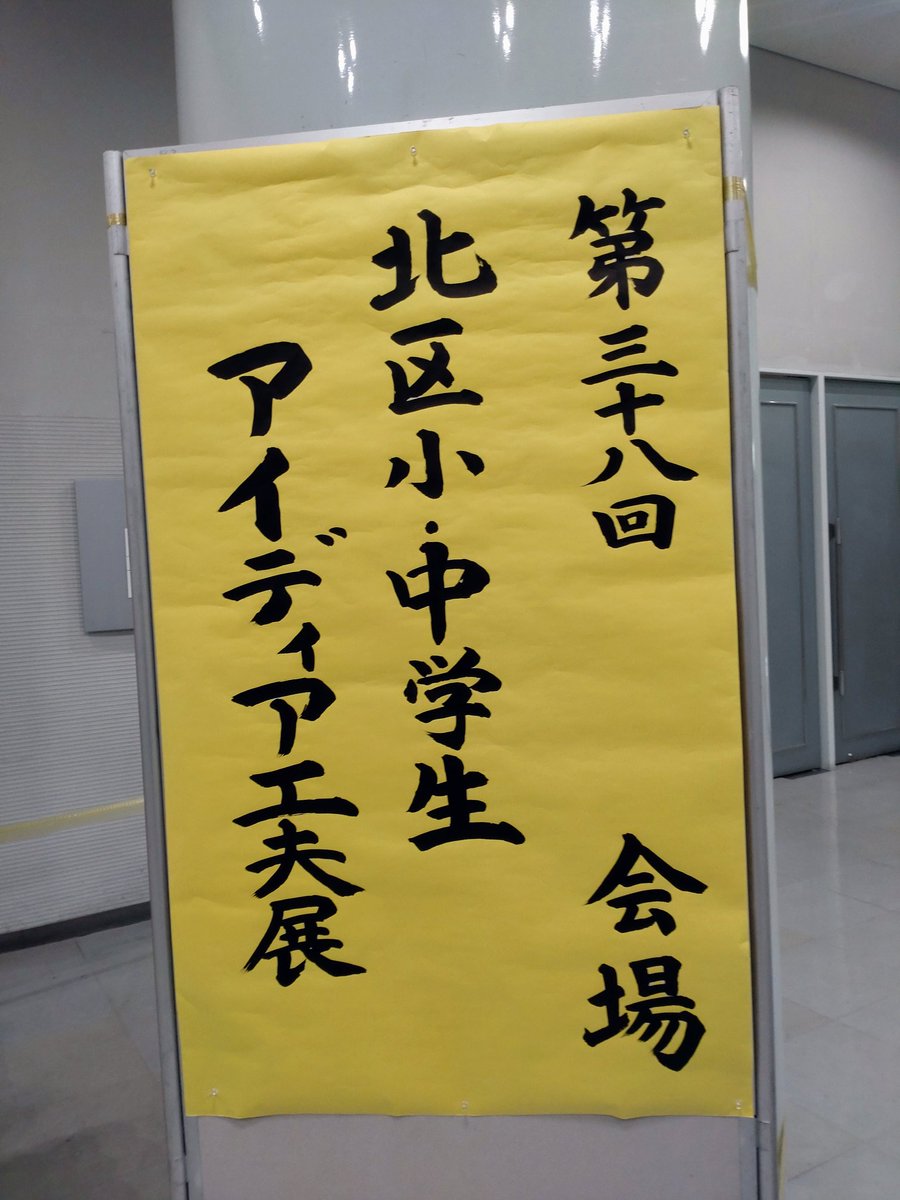 第三十八回　会場
北区小・中学生
アイディア工夫展